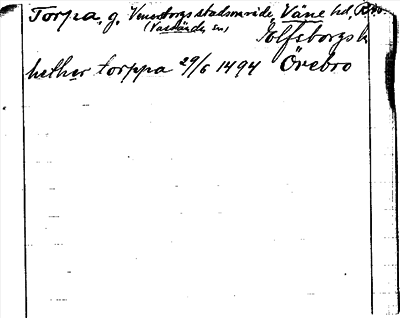 Torpa, g. Venersborgs stadsområde, Väne hd,
(Vassända sn) Elfsborgs l.
hether torppa 29/6 1494 Örebro